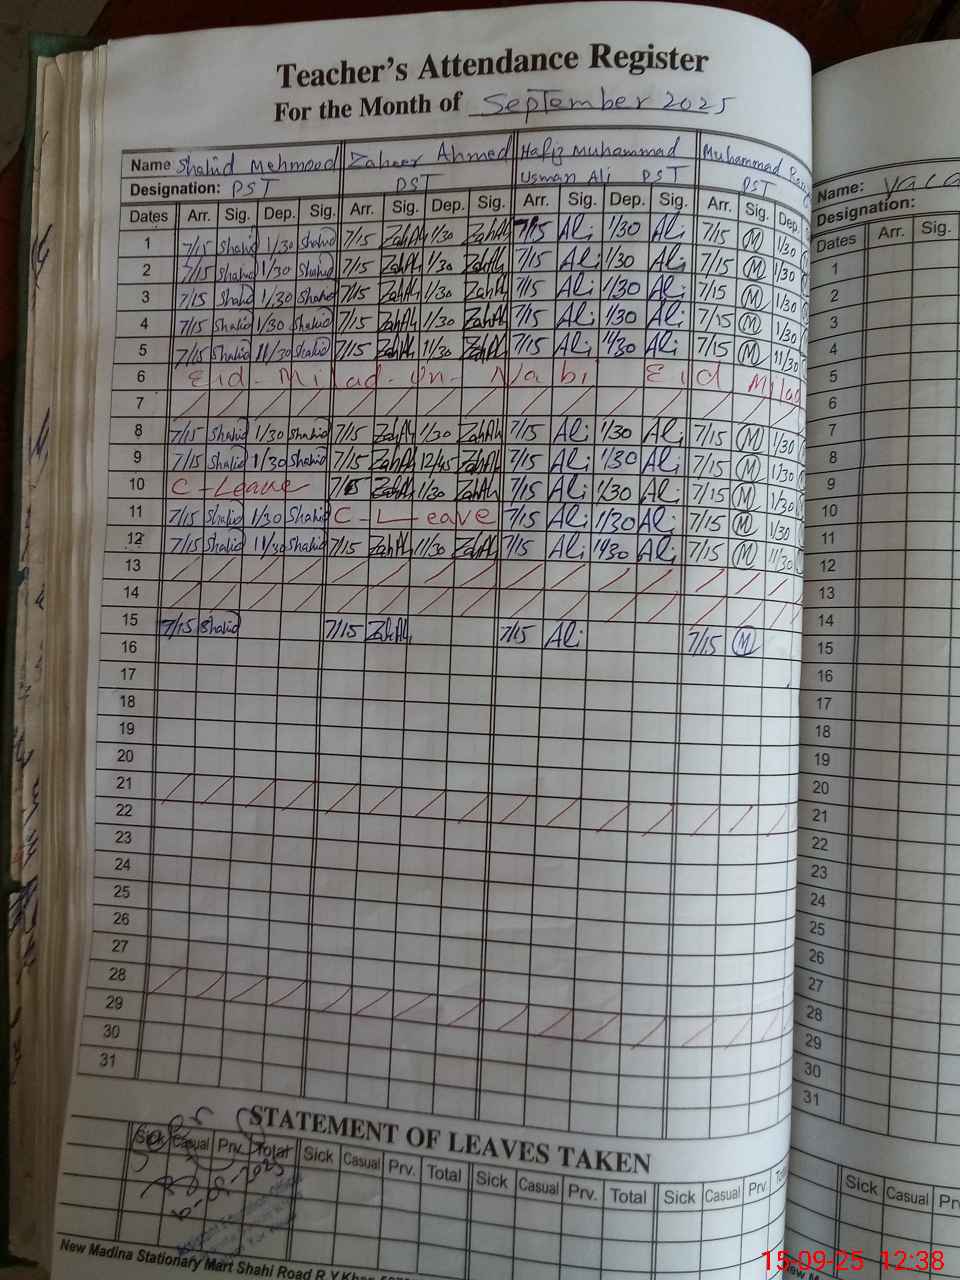 Teacher's Attendance Register
For the Month of September 2025
Name Shahid Mehmood Zaheer Ahmed Hafiz Muhammad Muhammad
Designation: PST PST Usman Ali PST PST
Dates Arr. Sig. Dep. Sig. Arr. Sig. Dep. Sig. Arr. Sig. Dep. Sig. Arr. Sig. Dep.
1 7/15 Shahid 1/30 Shahid 7/15 ZahAh 1/30 ZahAh 7/15 Ali 1/30 Ali 7/15 M 1/30
2 7/15 Shahid 1/30 Shahid 7/15 ZahAh 1/30 ZahAh 7/15 Ali 1/30 Ali 7/15 M 1/30
3 7/15 Shahid 1/30 Shahid 7/15 ZahAh 1/30 ZahAh 7/15 Ali 1/30 Ali 7/15 M 1/30
4 7/15 Shahid 1/30 Shahid 7/15 ZahAh 1/30 ZahAh 7/15 Ali 1/30 Ali 7/15 M 1/30
5 7/15 Shahid 11/30 Shahid 7/15 ZahAh 11/30 ZahAh 7/15 Ali 11/30 Ali 7/15 M 11/30
6 Eid-Milad-un-Nabi Eid Milad
7
8 7/15 Shahid 1/30 Shahid 7/15 ZahAh 1/30 ZahAh 7/15 Ali 1/30 Ali 7/15 M 1/30
9 7/15 Shahid 1/30 Shahid 7/15 ZahAh 12/45 ZahAh 7/15 Ali 1/30 Ali 7/15 M 1/30
10 C-Leave 7/15 ZahAh 1/30 ZahAh 7/15 Ali 1/30 Ali 7/15 M 1/30
11 7/15 Shahid 1/30 Shahid C-Leave 7/15 Ali 1/30 Ali 7/15 M 1/30
12 7/15 Shahid 11/30 Shahid 7/15 ZahAh 11/30 ZahAh 7/15 Ali 11/30 Ali 7/15 M 11/30
13
14
15 7/15 Shahid 7/15 ZahAh 7/15 Ali 7/15 M
16
17
18
19
20
21
22
23
24
25
26
27
28
29
30
31
STATEMENT OF LEAVES TAKEN
Sick Casual Prv. Total Sick Casual Prv. Total Sick Casual Prv. Total Sick Casual Prv.
New Madina Stationary Mart Shahi Road R.Y.Khan
Name:
Designation:
Dates Arr. Sig.
1
2
3
4
5
6
7
8
9
10
11
12
13
14
15
16
17
18
19
20
21
22
23
24
25
26
27
28
29
30
31
Sick Casual
15-09-25 12:38